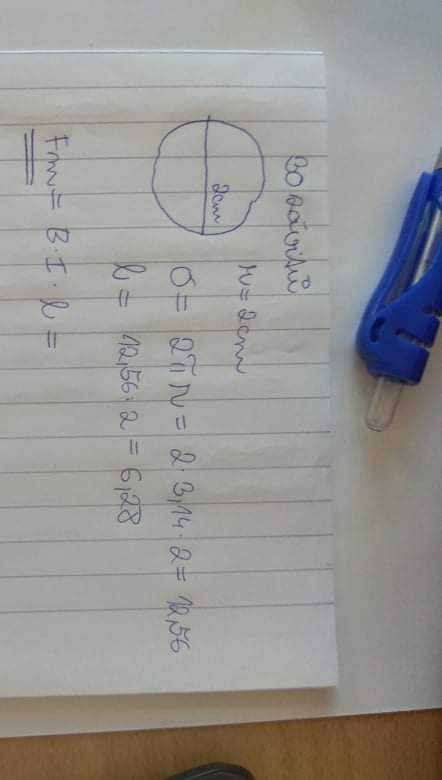 30 závitů
2cm
r = 2cm
O = 2πr = 2·3,14·2 = 12,56
l = 12,56:2 = 6,28
Fm = B·I·l =